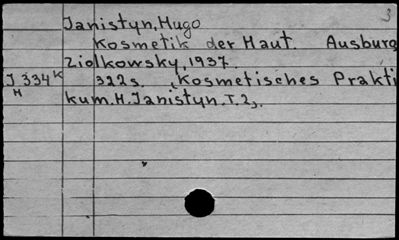 3
Janistyn, Hugo
Kosmetik der Haut. Ausburg
Ziolkowsky, 1937.
J 334 K 322s. (Kosmetisches Prakti
H
kum. H. Janistyn. T. 2).